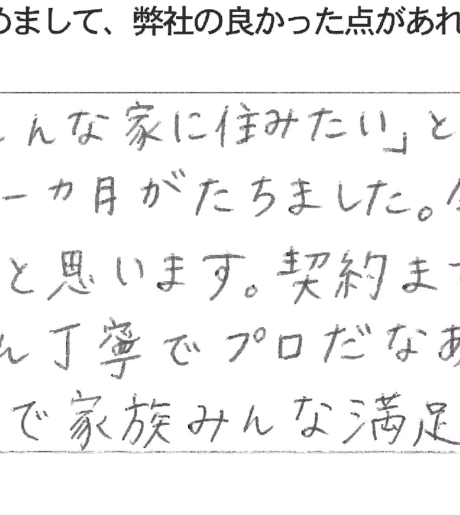 めまして、弊社の良かった点があれ
んな家に住みたい」と
一カ月がたちました。
と思います。契約ま
ん丁寧でプロだなあ
で家族みんな満足